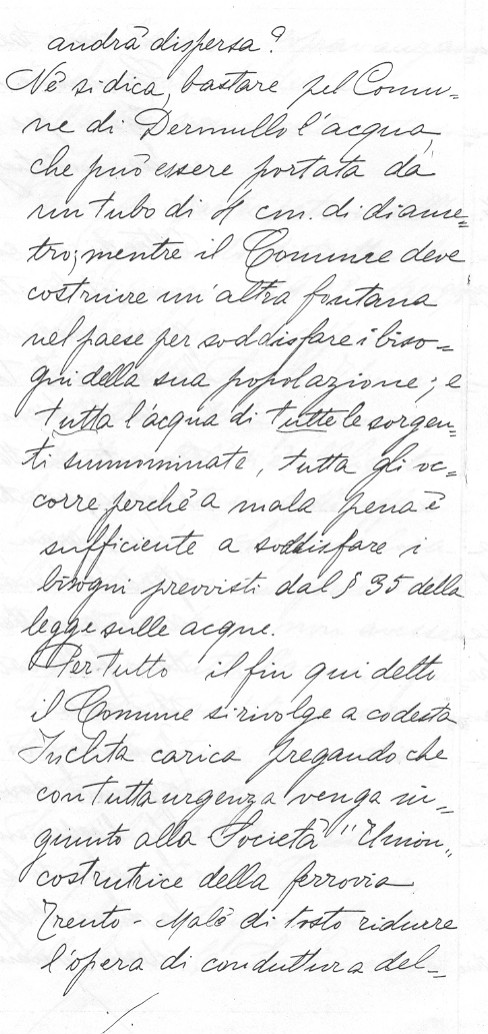 andrà dispersa?
Nè si dica, bastare pel Comu=
ne di Dermullo l'acqua,
che può essere portata da
un tubo di 4 cm. di diame=
tro; mentre il Comune deve
costruire un'altra fontana
nel paese per soddisfare i biso=
gni della sua popolazione; e
tutta l'acqua di tutte le sorgen=
ti summominate, tutta gli oc=
corre, perchè a mala pena è
sufficiente a soddisfare i
bisogni previsti dal § 35 della
legge sulle acque.
Per tutto il fin qui detto
il Comune si rivolge a codesta
Inclita carica pregando che
con tutta urgenza venga in=
giunto alla Società "Union"
costrutrice della ferrovia
Trento - Malè di tosto ridurre
l'opera di conduttura del=
./.